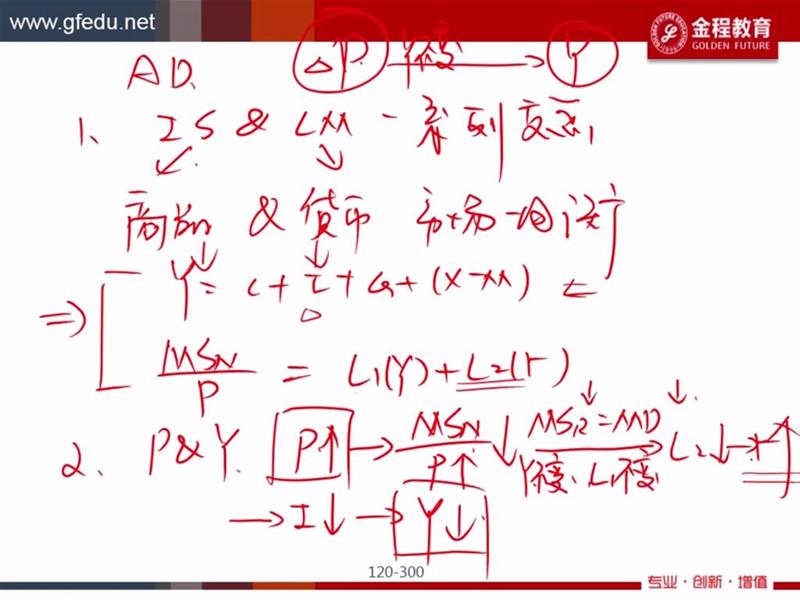 www.gfedu.net
金程教育
GOLDEN FUTURE
AD. ΔP Y不变 → Y
1、 IS & LM 一系列交点
↙ ↓
商品 & 货币 市场均衡
↓ ↓
⇒ Y = C + I + G + (X-M) ←
MSN/P = L1(Y) + L2(r)
2、 P&Y. P↑ → MSN/P↑ ↓ MSR=MD Y不变、L1不变 → L2↓ → r↑
→ I↓ → Y↓
120-300
专业·创新·增值